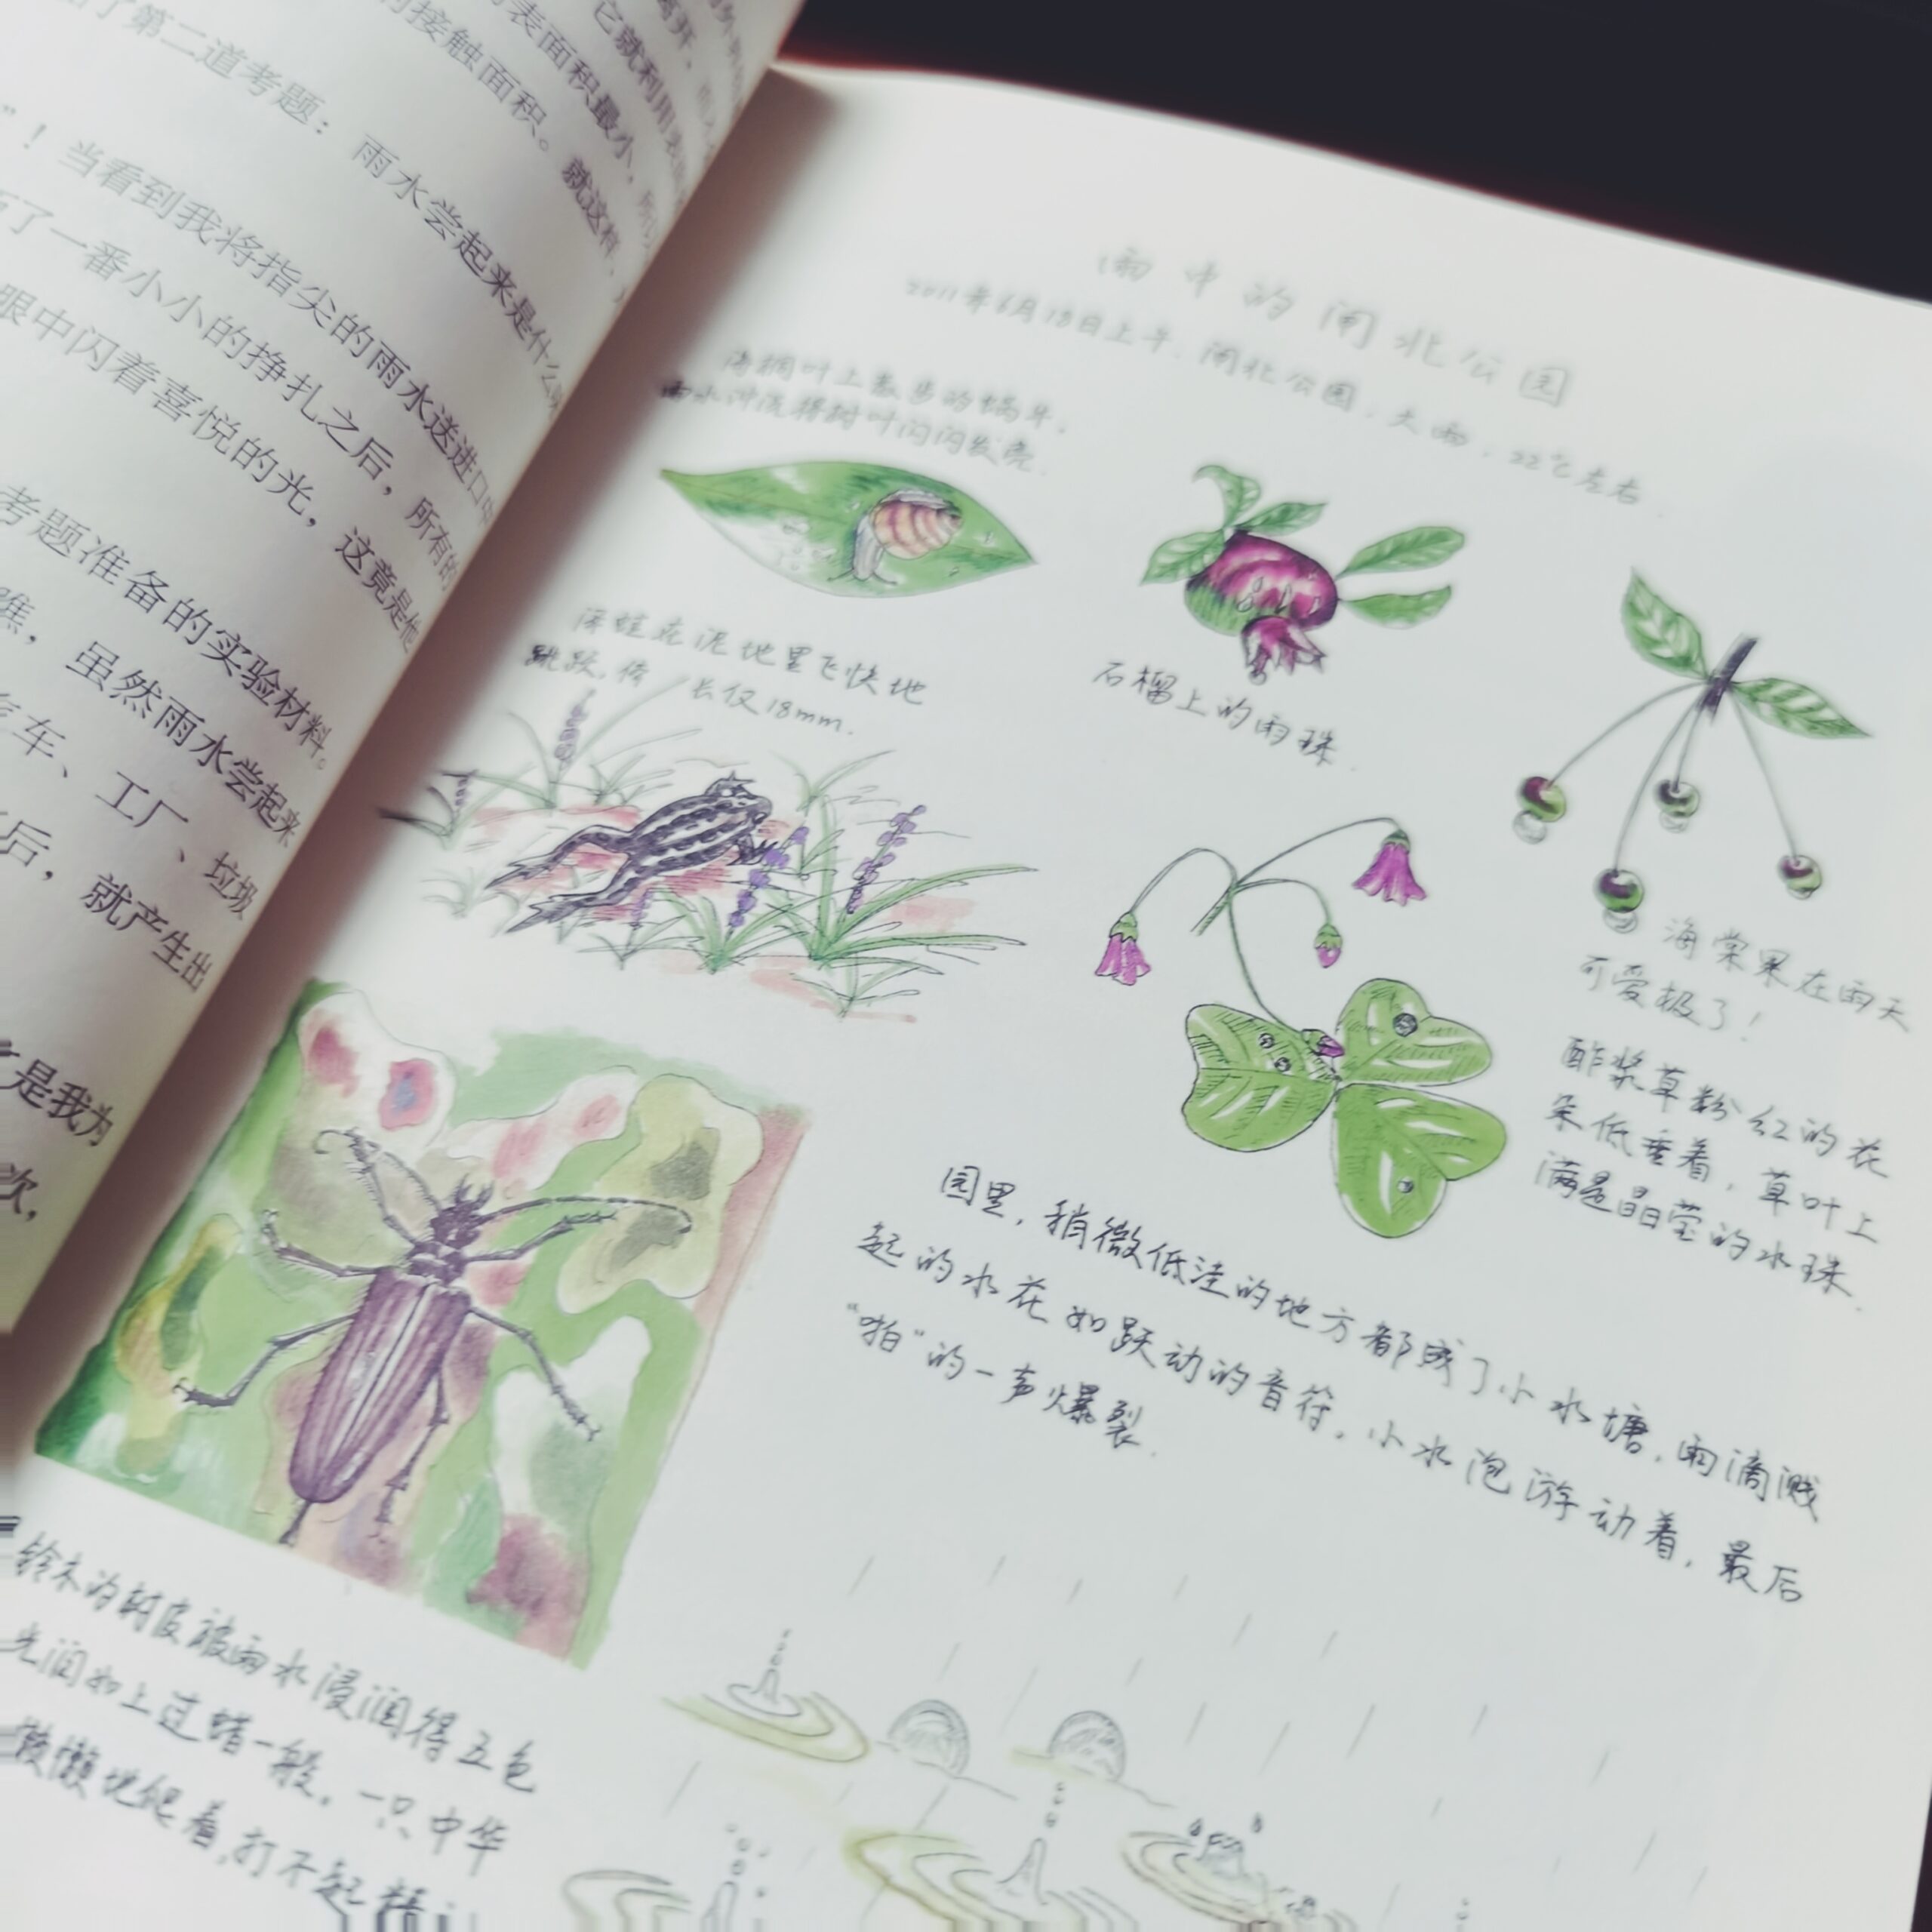 表面积最小，
它就利用表
接触面积。就这样，
了第二道考题：雨水尝起来是什么
”！当看到我将指尖的雨水送进口中
了一番小小的挣扎之后，所有的
眼中闪着喜悦的光，这竟是他
考题准备的实验材料。
瞧，虽然雨水尝起来
车、工厂、垃圾
后，就产生出
是我为
次，
雨中的闸北公园
2011年6月18日上午．闸北公园，大雨，22℃左右．
海桐叶上散步的蜗牛，
雨水冲洗得树叶闪闪发亮．
石榴上的雨珠．
泽蛙在泥地里飞快地
跳跃，体长仅18mm．
海棠果在雨天
可爱极了！
酢浆草粉红的花
朵低垂着，草叶上
满是晶莹的水珠．
园里，稍微低洼的地方都成了小水塘，雨滴溅
起的水花如跃动的音符，小水泡游动着，最后
“啪”的一声爆裂．
的树皮被雨水浸润得五色
光润如上过蜡一般，一只中华
懒懒地爬着，打不起精